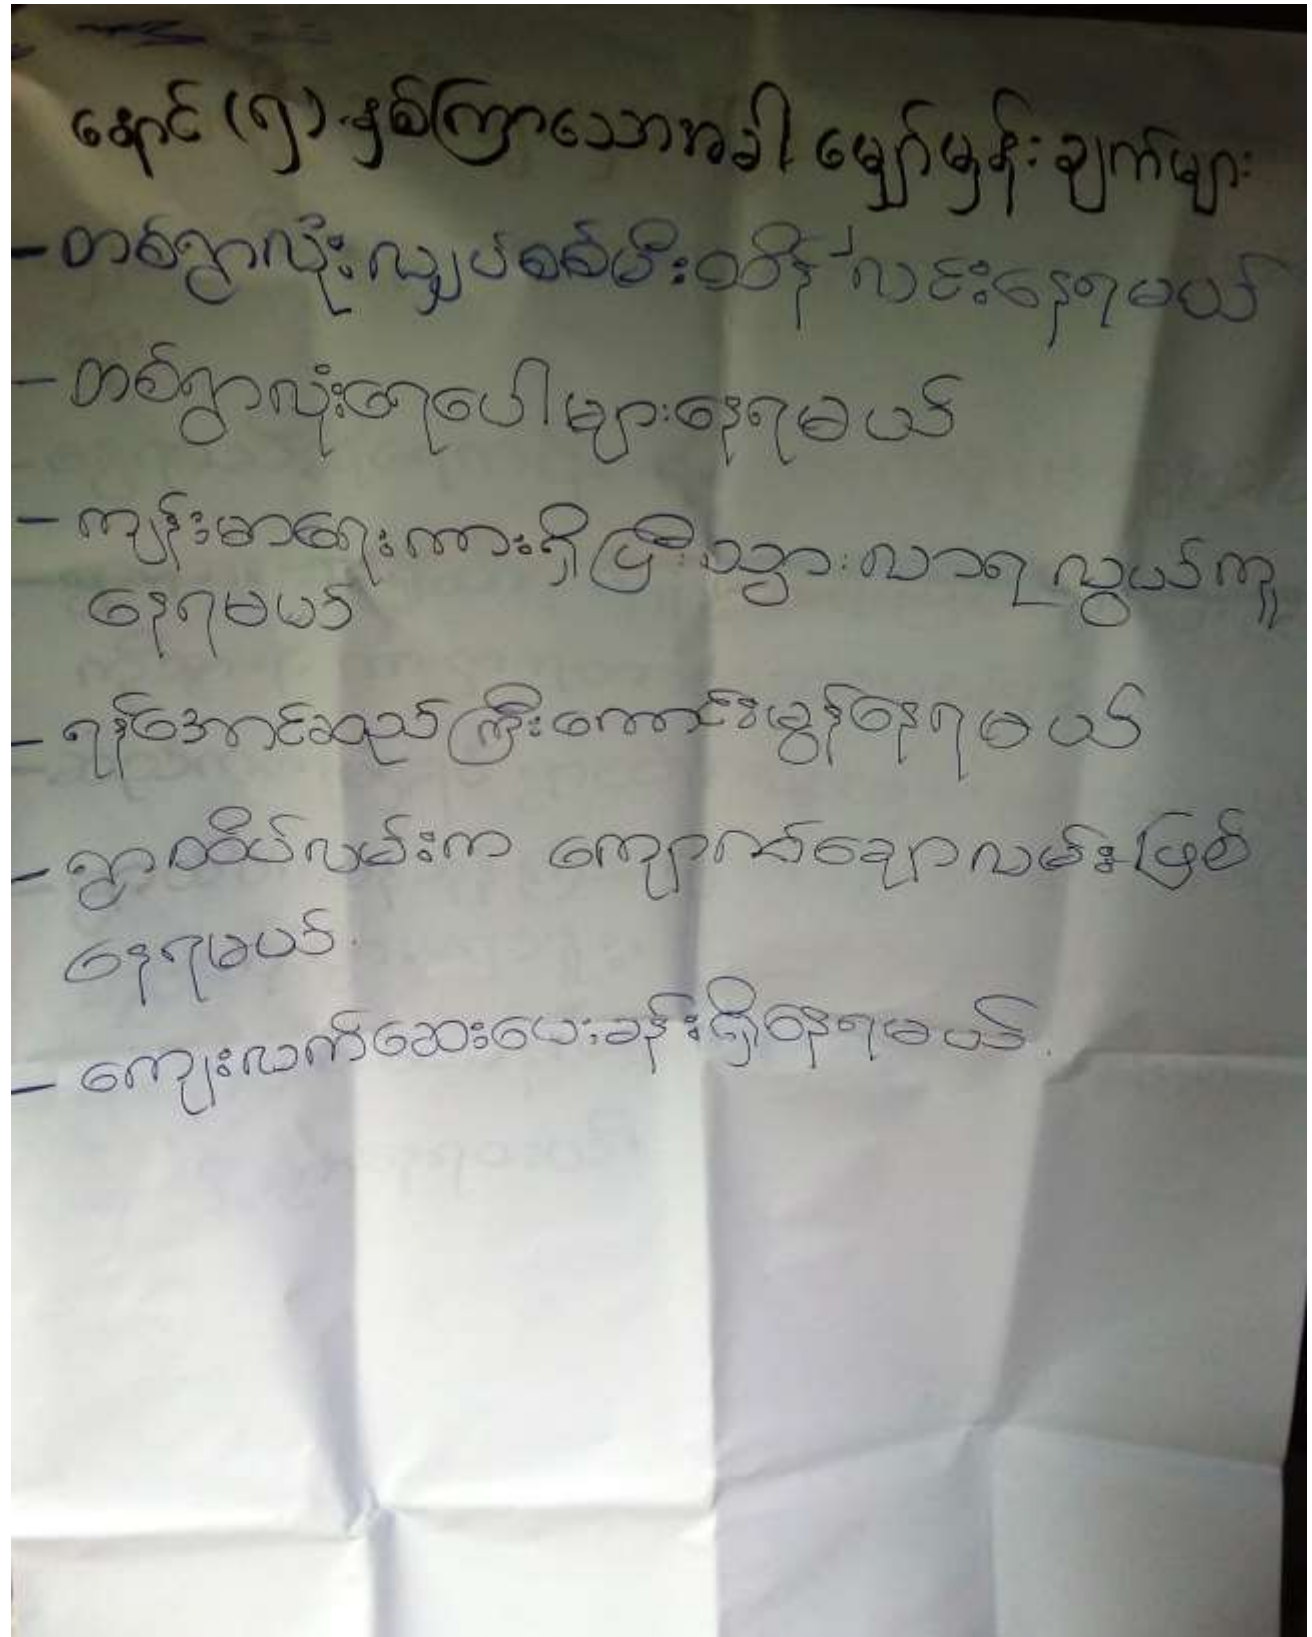 နောင် (၅) နှစ်ကြာသောအခါ မျှော်မှန်းချက်များ
- တစ်ရွာလုံးလျှပ်စစ်မီးထိန်လင်းနေရမယ်
- တစ်ရွာလုံးရေပေါများနေရမယ်
- ကျန်းမာရေးကားရှိပြီးသွားလာရလွယ်ကူ
နေရမယ်
- ရန်အောင်ဆည်ကြီးကောင်းမွန်နေရမယ်
- ရွာထိပ်လမ်းက ကျောက်ချောလမ်းဖြစ်
နေရမယ်.
- ကျေးလက်ဆေးပေးခန်းရှိနေရမယ်.